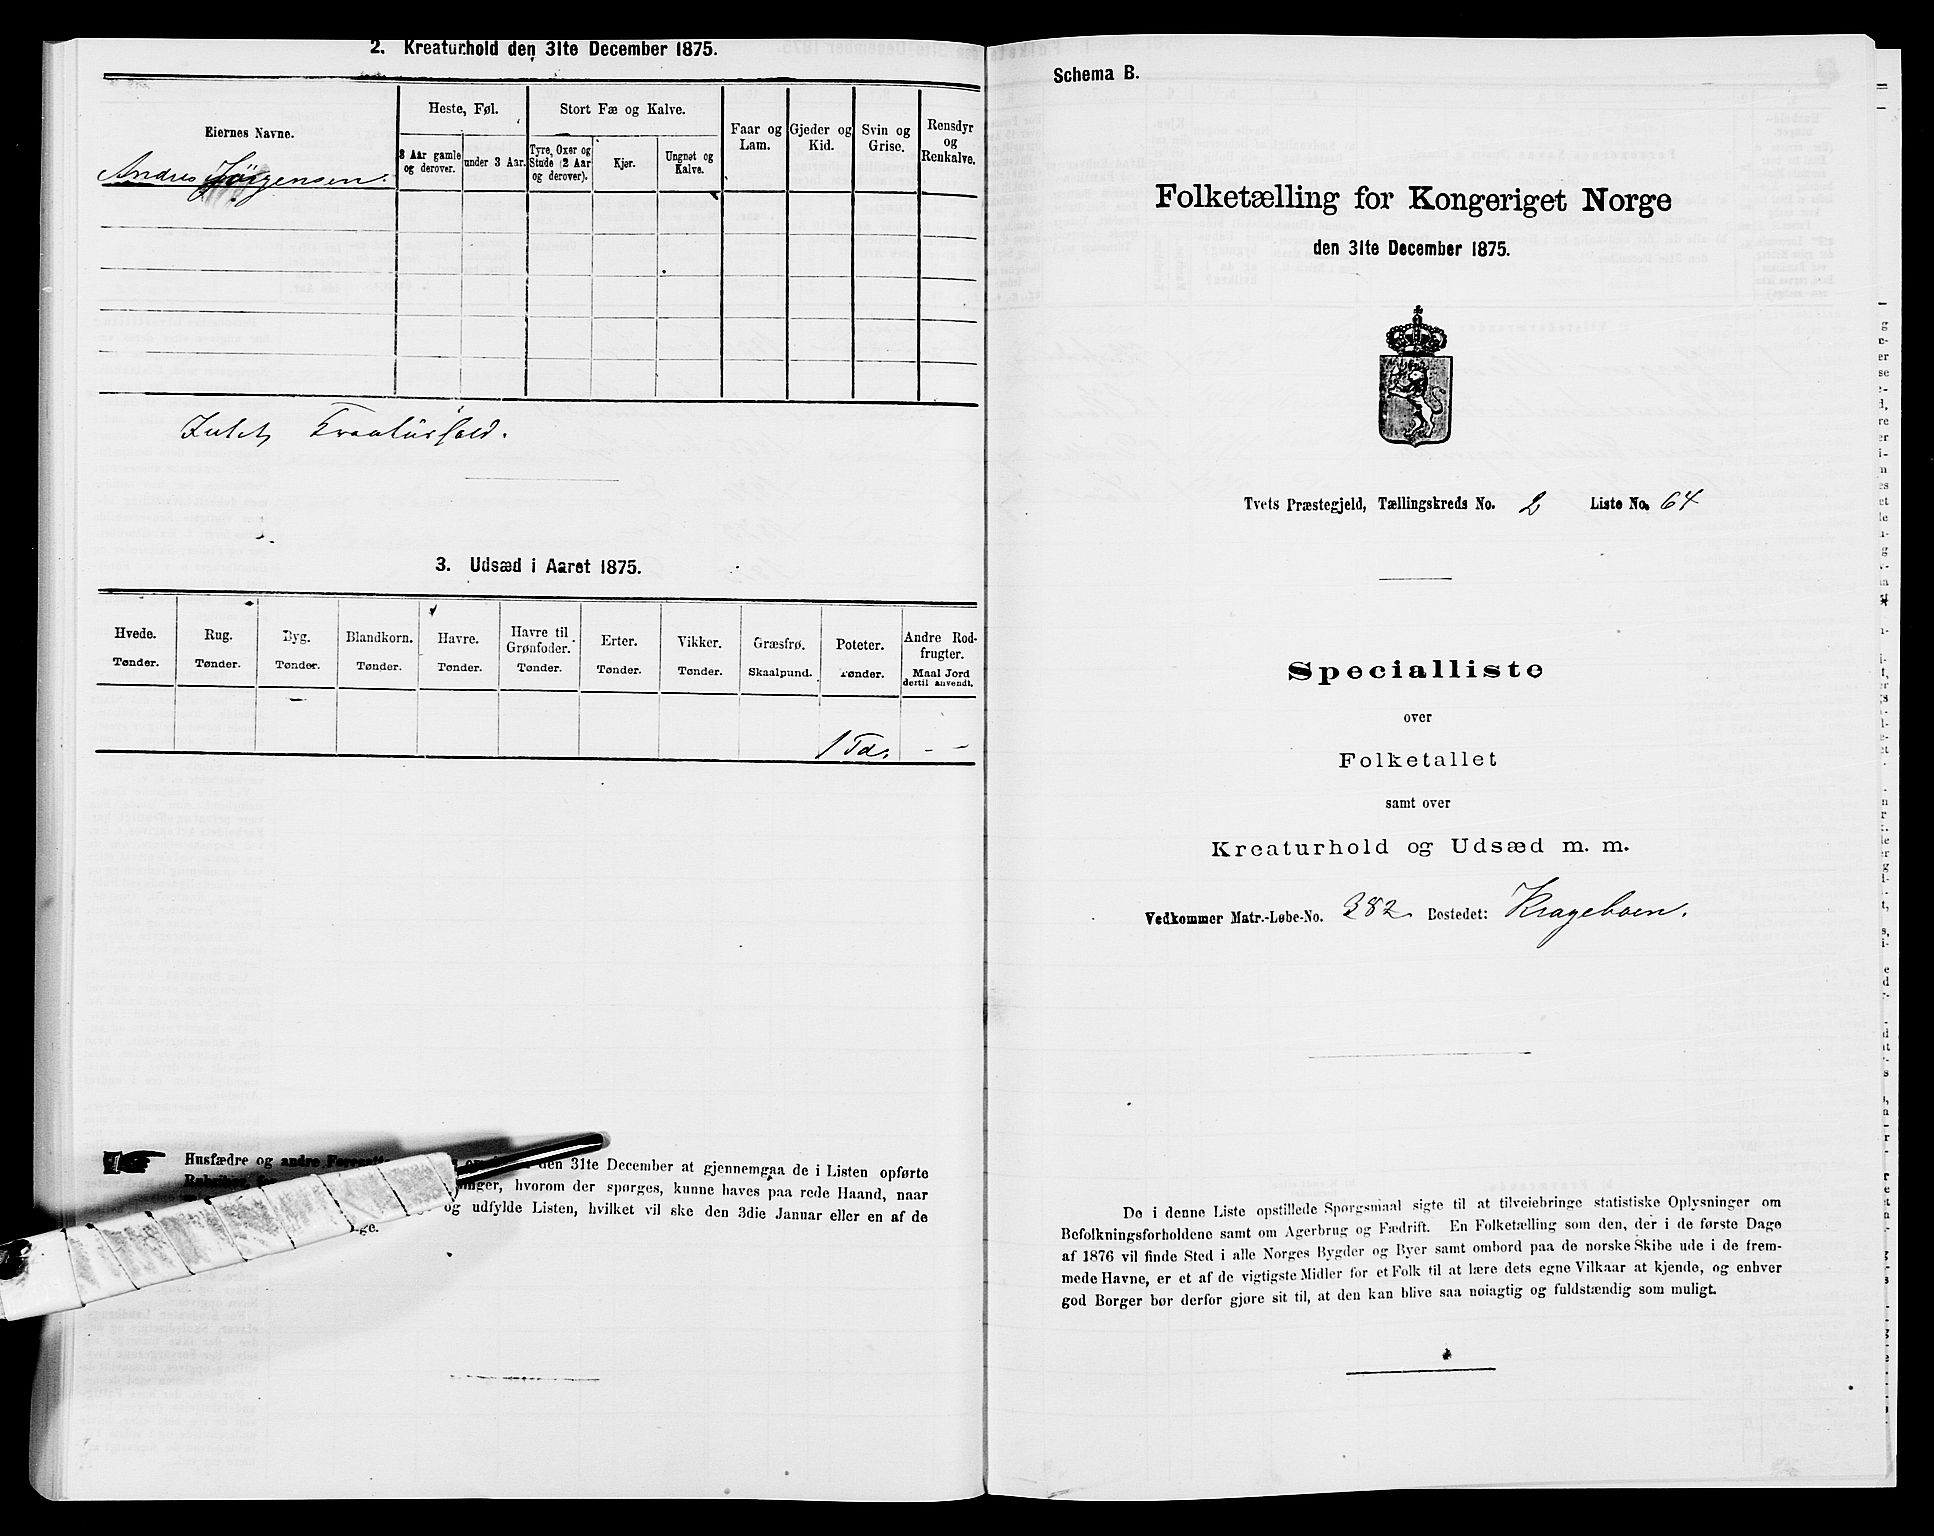 2. Kreaturhold den 31te December 1875.
Eiernes Navne.
Heste, Føl.
3 Aar gamle og derover.
under 3 Aar.
Stort Fæ og Kalve.
Tyre, Oxer og Stude (2 Aar og derover).
Kjør.
Ungnøt og Kalve.
Faar og Lam.
Gjeder og Kid.
Svin og Grise.
Rensdyr og Renkalve.
Andres Jörgensen.
Intet Kreaturhold.
3. Udsæd i Aaret 1875.
Hvede. Rug. Byg. Blandkorn. Havre. Havre til Grønfoder. Erter. Vikker. Græsfrø. Poteter. Andre Rodfrugter.
Tønder. Tønder. Tønder. Tønder. Tønder. Tønder. Tønder. Tønder. Skaalpund. Tønder. Maal Jord dertil anvendt.
1 Td. - -
Husfædre og andre den 31te December at gjennemgaa de i Listen opførte
hvorom der spørges, kunne haves paa rede Haand, naar
og udfylde Listen, hvilket vil ske den 3die Januar eller en af de
Schema B.
Folketælling for Kongeriget Norge
den 31te December 1875.
Tvets Præstegjeld, Tællingskreds No. 2 Liste No. 64
Specialliste
over
Folketallet
samt over
Kreaturhold og Udsæd m. m.
Vedkommer Matr.-Løbe-No. 382. Bostedet: Krageboen.
De i denne Liste opstillede Spørgsmaal sigte til at tilveiebringe statistiske Oplysninger om
Befolkningsforholdene samt om Agerbrug og Fædrift. En Folketælling som den, der i de første Dage
af 1876 vil finde Sted i alle Norges Bygder og Byer samt ombord paa de norske Skibe ude i de frem-
mede Havne, er et af de vigtigste Midler for et Folk til at lære dets egne Vilkaar at kjende, og enhver
god Borger bør derfor gjøre sit til, at den kan blive saa nøiagtig og fuldstændig som muligt.